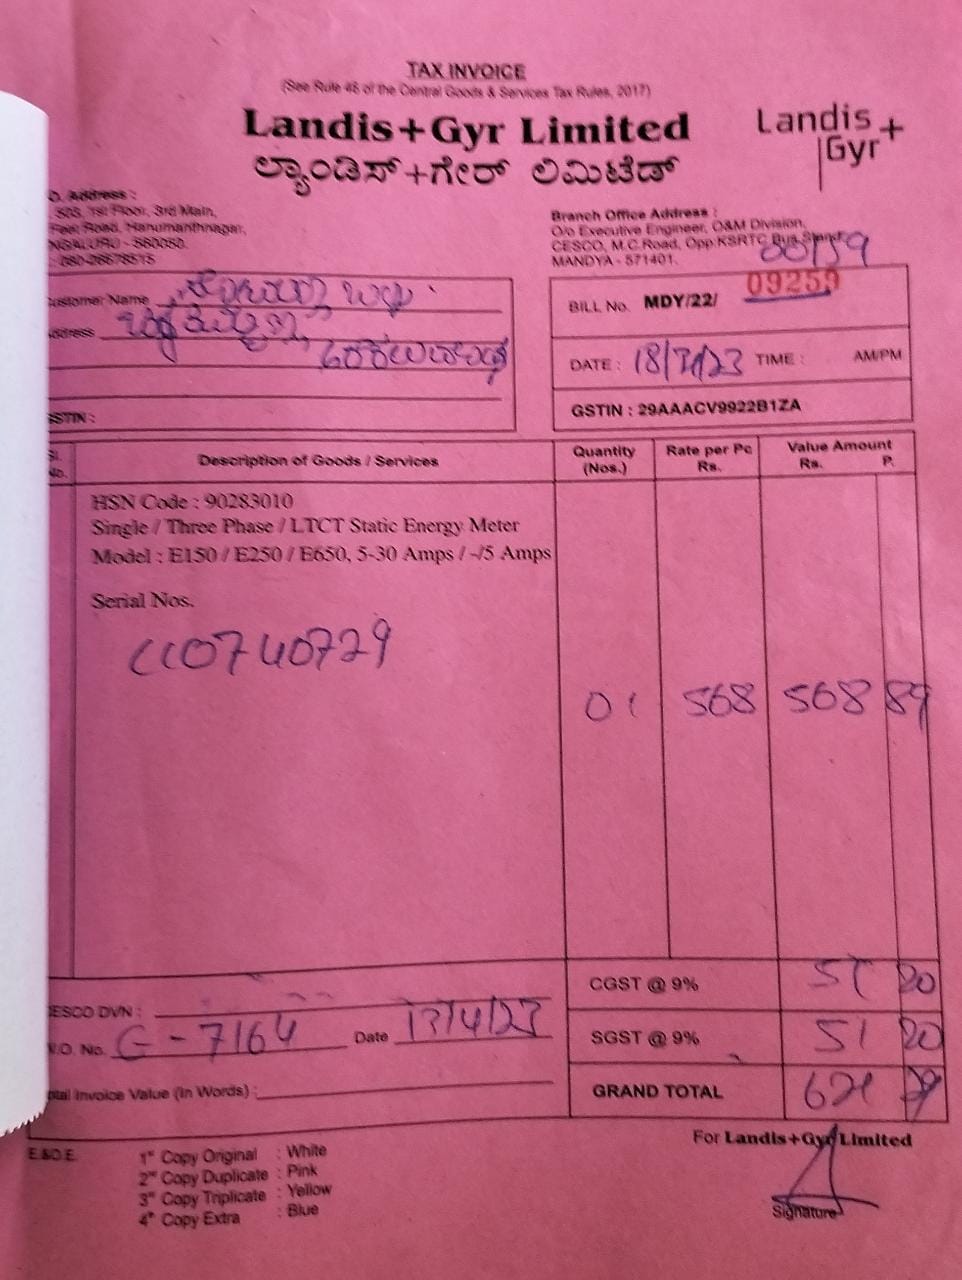 TAX INVOICE
(See Rule 46 of the Central Goods & Services Tax Rules, 2017)
Landis+Gyr Limited
Landis+
Gyr
ಲ್ಯಾಂಡಿಸ್+ಗೇರ್ ಲಿಮಿಟೆಡ್
Address :
503, 1st Floor, 3rd Main,
Feet Road, Hanumanthnagar,
560050
080-26678515
Branch Office Address :
O/o Executive Engineer, O&M Division,
CESCO, M.C.Road, Opp.KSRTC Bus Stand
MANDYA - 571401.
ustomer Name
ddress
STIN :
BILL No. MDY/22/ 09259
DATE : 18/7/23 TIME : AM/PM
GSTIN : 29AAACV9922B1ZA
Description of Goods / Services
Quantity (Nos.)
Rate per Pc Rs.
Value Amount
Rs. P.
HSN Code : 90283010
Single / Three Phase / LTCT Static Energy Meter
Model : E150 / E250 / E650, 5-30 Amps / -/5 Amps
Serial Nos.
CC0740729
01 568 568 89
CGST @ 9% 20
SGST @ 9% 51 20
GRAND TOTAL
ESCO DVN :
.O. No. G-7164 Date
tal Invoice Value (In Words) :
For Landis+Gyr Limited
Signature
E.&O.E.
1st Copy Original : White
2nd Copy Duplicate : Pink
3rd Copy Triplicate : Yellow
4th Copy Extra : Blue